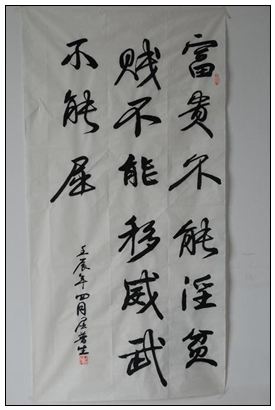 富贵不能淫贫
贱不能移威武
不能屈
壬辰年四月